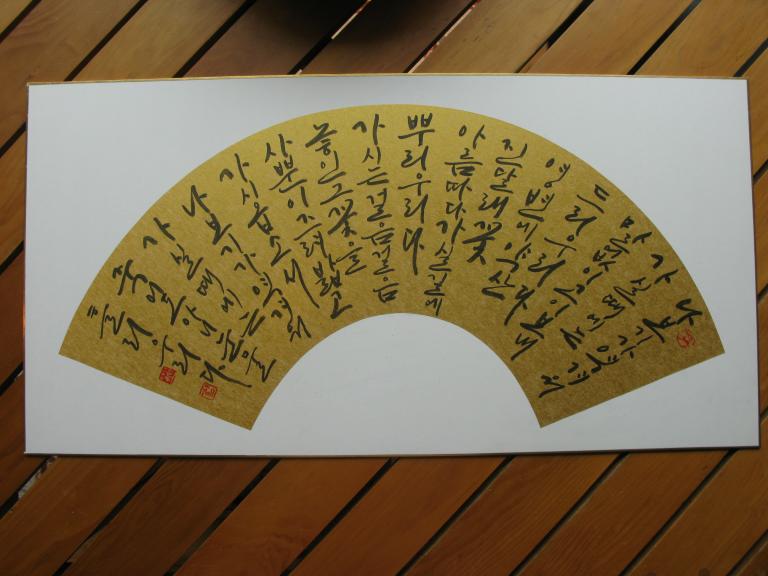 나보기가 역겨워
가실 때에는
말없이 고이 보내
드리우리다
영변에 약산
진달래꽃
아름따다 가실 길에
뿌리우리다
가시는 걸음걸음
놓인 그 꽃을
사뿐이 즈려 밟고
가시옵소서
나보기가 역겨워
가실 때에는
죽어도 아니 눈물
흘리우리다